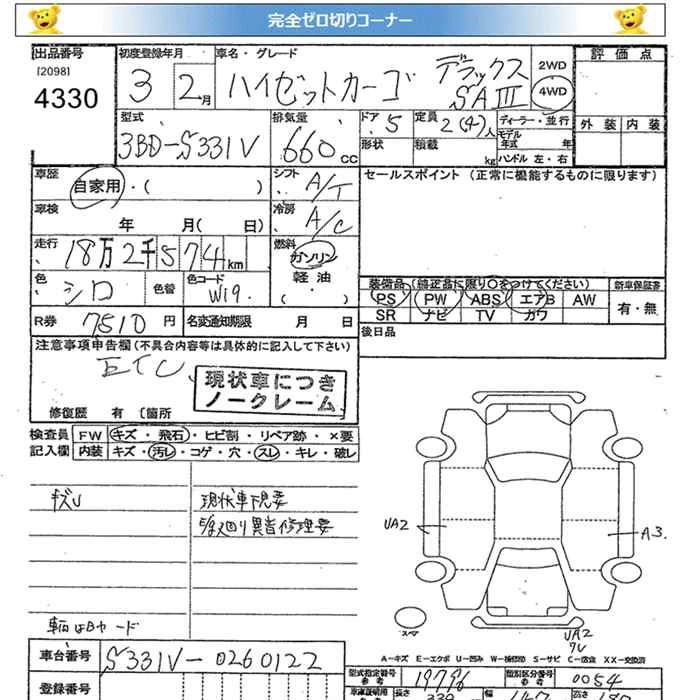 完全ゼロ切りコーナー
出品番号 初度登録年月 車名・グレード 評価点
[2098] 4330 3 2月 ハイゼットカーゴ デラックス SAⅢ 2WD 4WD
型式 排気量 ドア 定員 ディーラー・並行 外装 内装
3BD-S331V 660cc 5 2(4)人 モデル年式 年
形状 積載 kg ハンドル 左・右
車歴 自家用・( ) シフト A/T セールスポイント (正常に機能するものに限ります)
車検 年 月( 日) 冷房 A/C
走行 18万2千574km 燃料 ガソリン 軽油・( )
色 シロ 色替 色コード W19. 装備品(純正品に限り○をつけてください) 新車保証書
PS PW ABS エアB AW 有・無
SR ナビ TV カワ
R券 7510円 名変通知期限 月 日 後日品
注意事項申告欄(不具合内容等は具体的に記入して下さい)
ETC
現状車につき
ノークレーム
修復歴 有 〔箇所
検査員 FW キズ・飛石・ヒビ割・リペア跡・×要
記入欄 内装 キズ・汚レ・コゲ・穴・スレ・キレ・破レ
キズU 現状車下見要
廻り異音修理要
UA2 A3.
車輌はBヤード
スペア
UA2
A-キズ E-エクボ U-凹み W-補修跡 S-サビ C-腐食 XX-交換済
車台番号 S331V-0260122 型式指定番号 参考 19796 類別区分番号 参考 0054
登録番号 車庫証明用 参考 長さ 339 幅 147 高さ